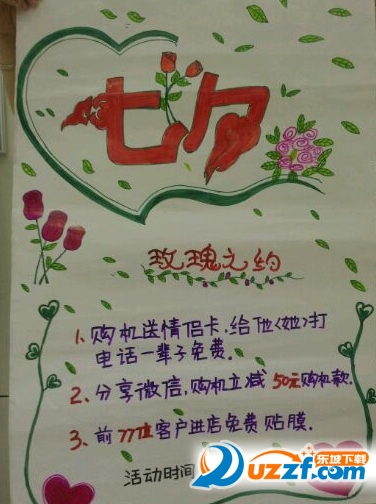 七夕
玫瑰之约
1、购机送情侣卡,给他<她>打
电话一辈子免费.
2、分享微信,购机立减50元购机款.
3、前77位客户进店免费贴膜.
活动时间
东坡下载
uzzf.com